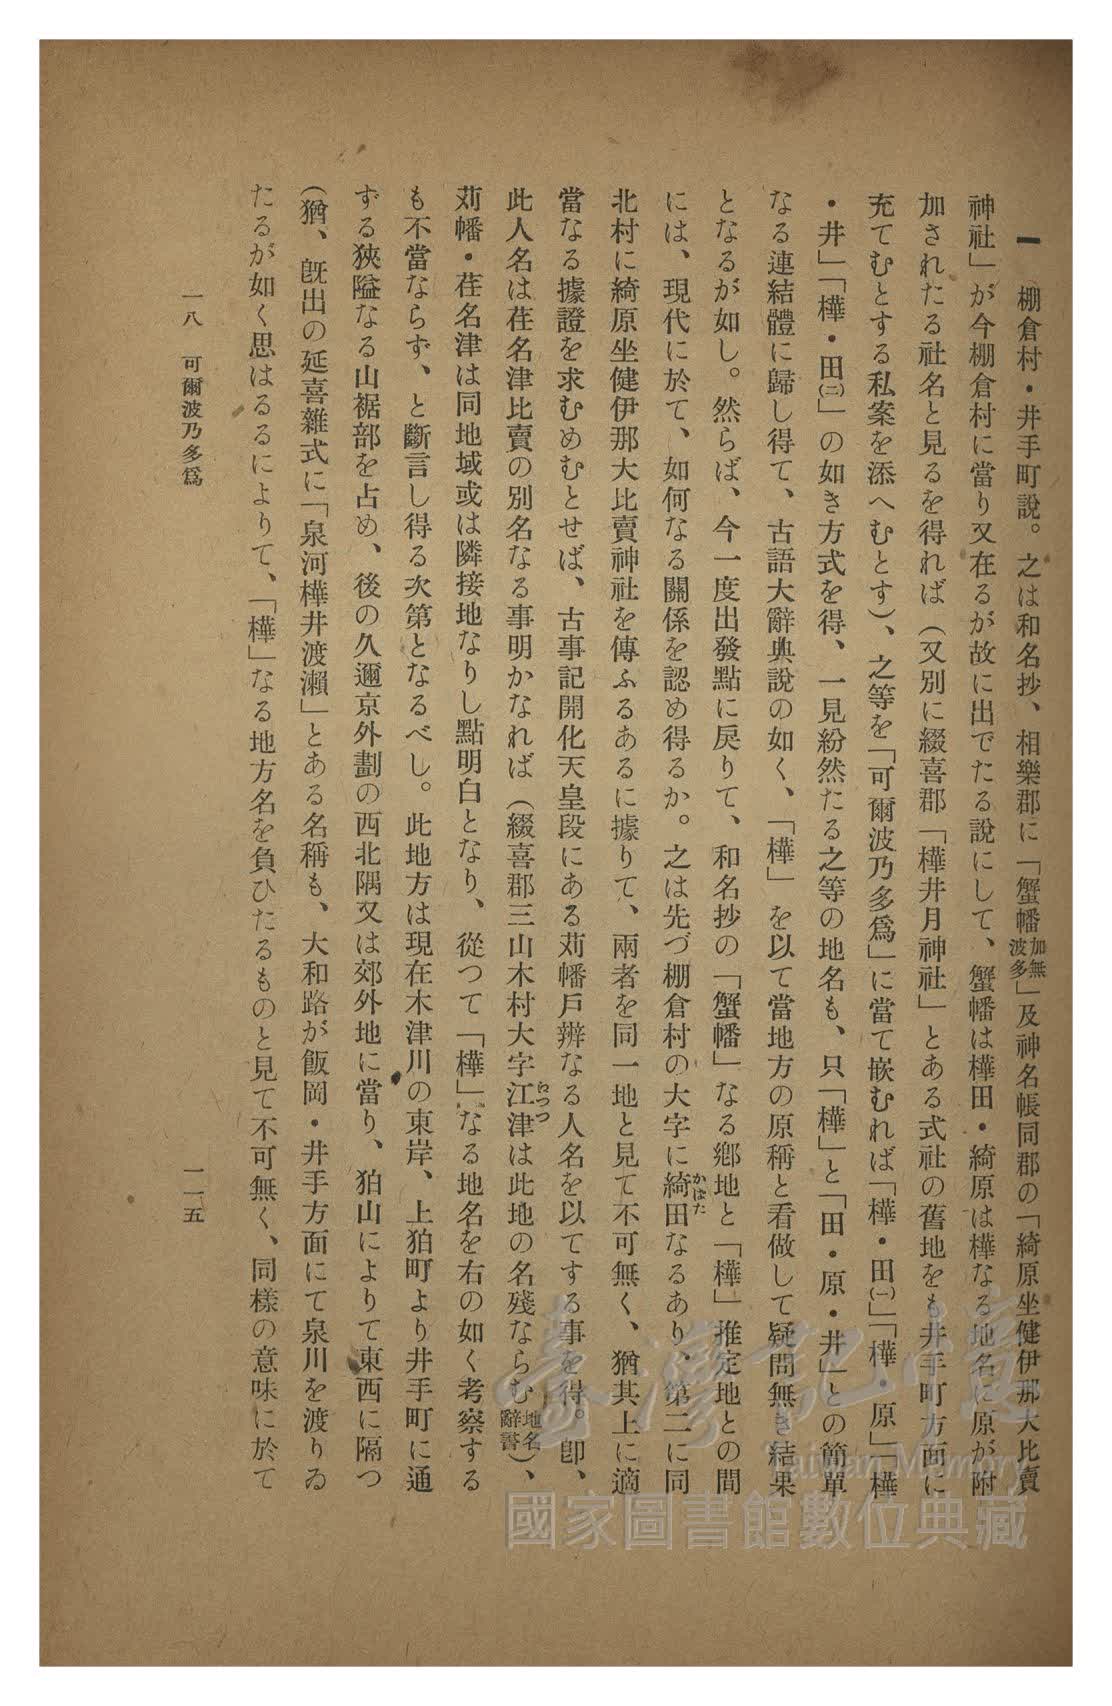 一　棚倉村・井手町說。之は和名抄、相樂郡に「蟹幡加無波多」及神名帳同郡の「綺原坐健伊那大比賣
神社」が今棚倉村に當り又在るが故に出でたる說にして、蟹幡は樺田・綺原は樺なる地名に原が附
加されたる社名と見るを得れば（又別に綴喜郡「樺井月神社」とある式社の舊地をも井手町方面に
充てむとする私案を添へむとす）、之等を「可爾波乃多爲」に當て嵌むれば「樺・田㈠」「樺・原」「樺
・井」「樺・田㈡」の如き方式を得、一見紛然たる之等の地名も、只「樺」と「田・原・井」との簡單
なる連結體に歸し得て、古語大辭典說の如く、「樺」を以て當地方の原稱と看做して疑問無き結果
となるが如し。然らば、今一度出發點に戾りて、和名抄の「蟹幡」なる鄕地と「樺」推定地との間
には、現代に於て、如何なる關係を認め得るか。之は先づ棚倉村の大字に綺田かばたなるあり、第二に同
北村に綺原坐健伊那大比賣神社を傳ふるあるに據りて、兩者を同一地と見て不可無く、猶其上に適
當なる據證を求むめむとせば、古事記開化天皇段にある苅幡戶辨なる人名を以てする事を得。卽、
此人名は荏名津比賣の別名なる事明かなれば（綴喜郡三山木村大字江津は此地の名殘ならむ地名辭書）、
苅幡・荏名津は同地域或は隣接地なりし點明白となり、從つて「樺」なる地名を右の如く考察する
も不當ならず、と斷言し得る次第となるべし。此地方は現在木津川の東岸、上狛町より井手町に通
ずる狹隘なる山裾部を占め、後の久邇京外劃の西北隅又は郊外地に當り、狛山によりて東西に隔つ
（猶、旣出の延喜雜式に「泉河樺井渡瀨」とある名稱も、大和路が飯岡・井手方面にて泉川を渡りゐ
たるが如く思はるるによりて、「樺」なる地方名を負ひたるものと見て不可無く、同樣の意味に於て
一八　可爾波乃多爲
一一五
臺灣記憶
Taiwan Memory
國家圖書館數位典藏